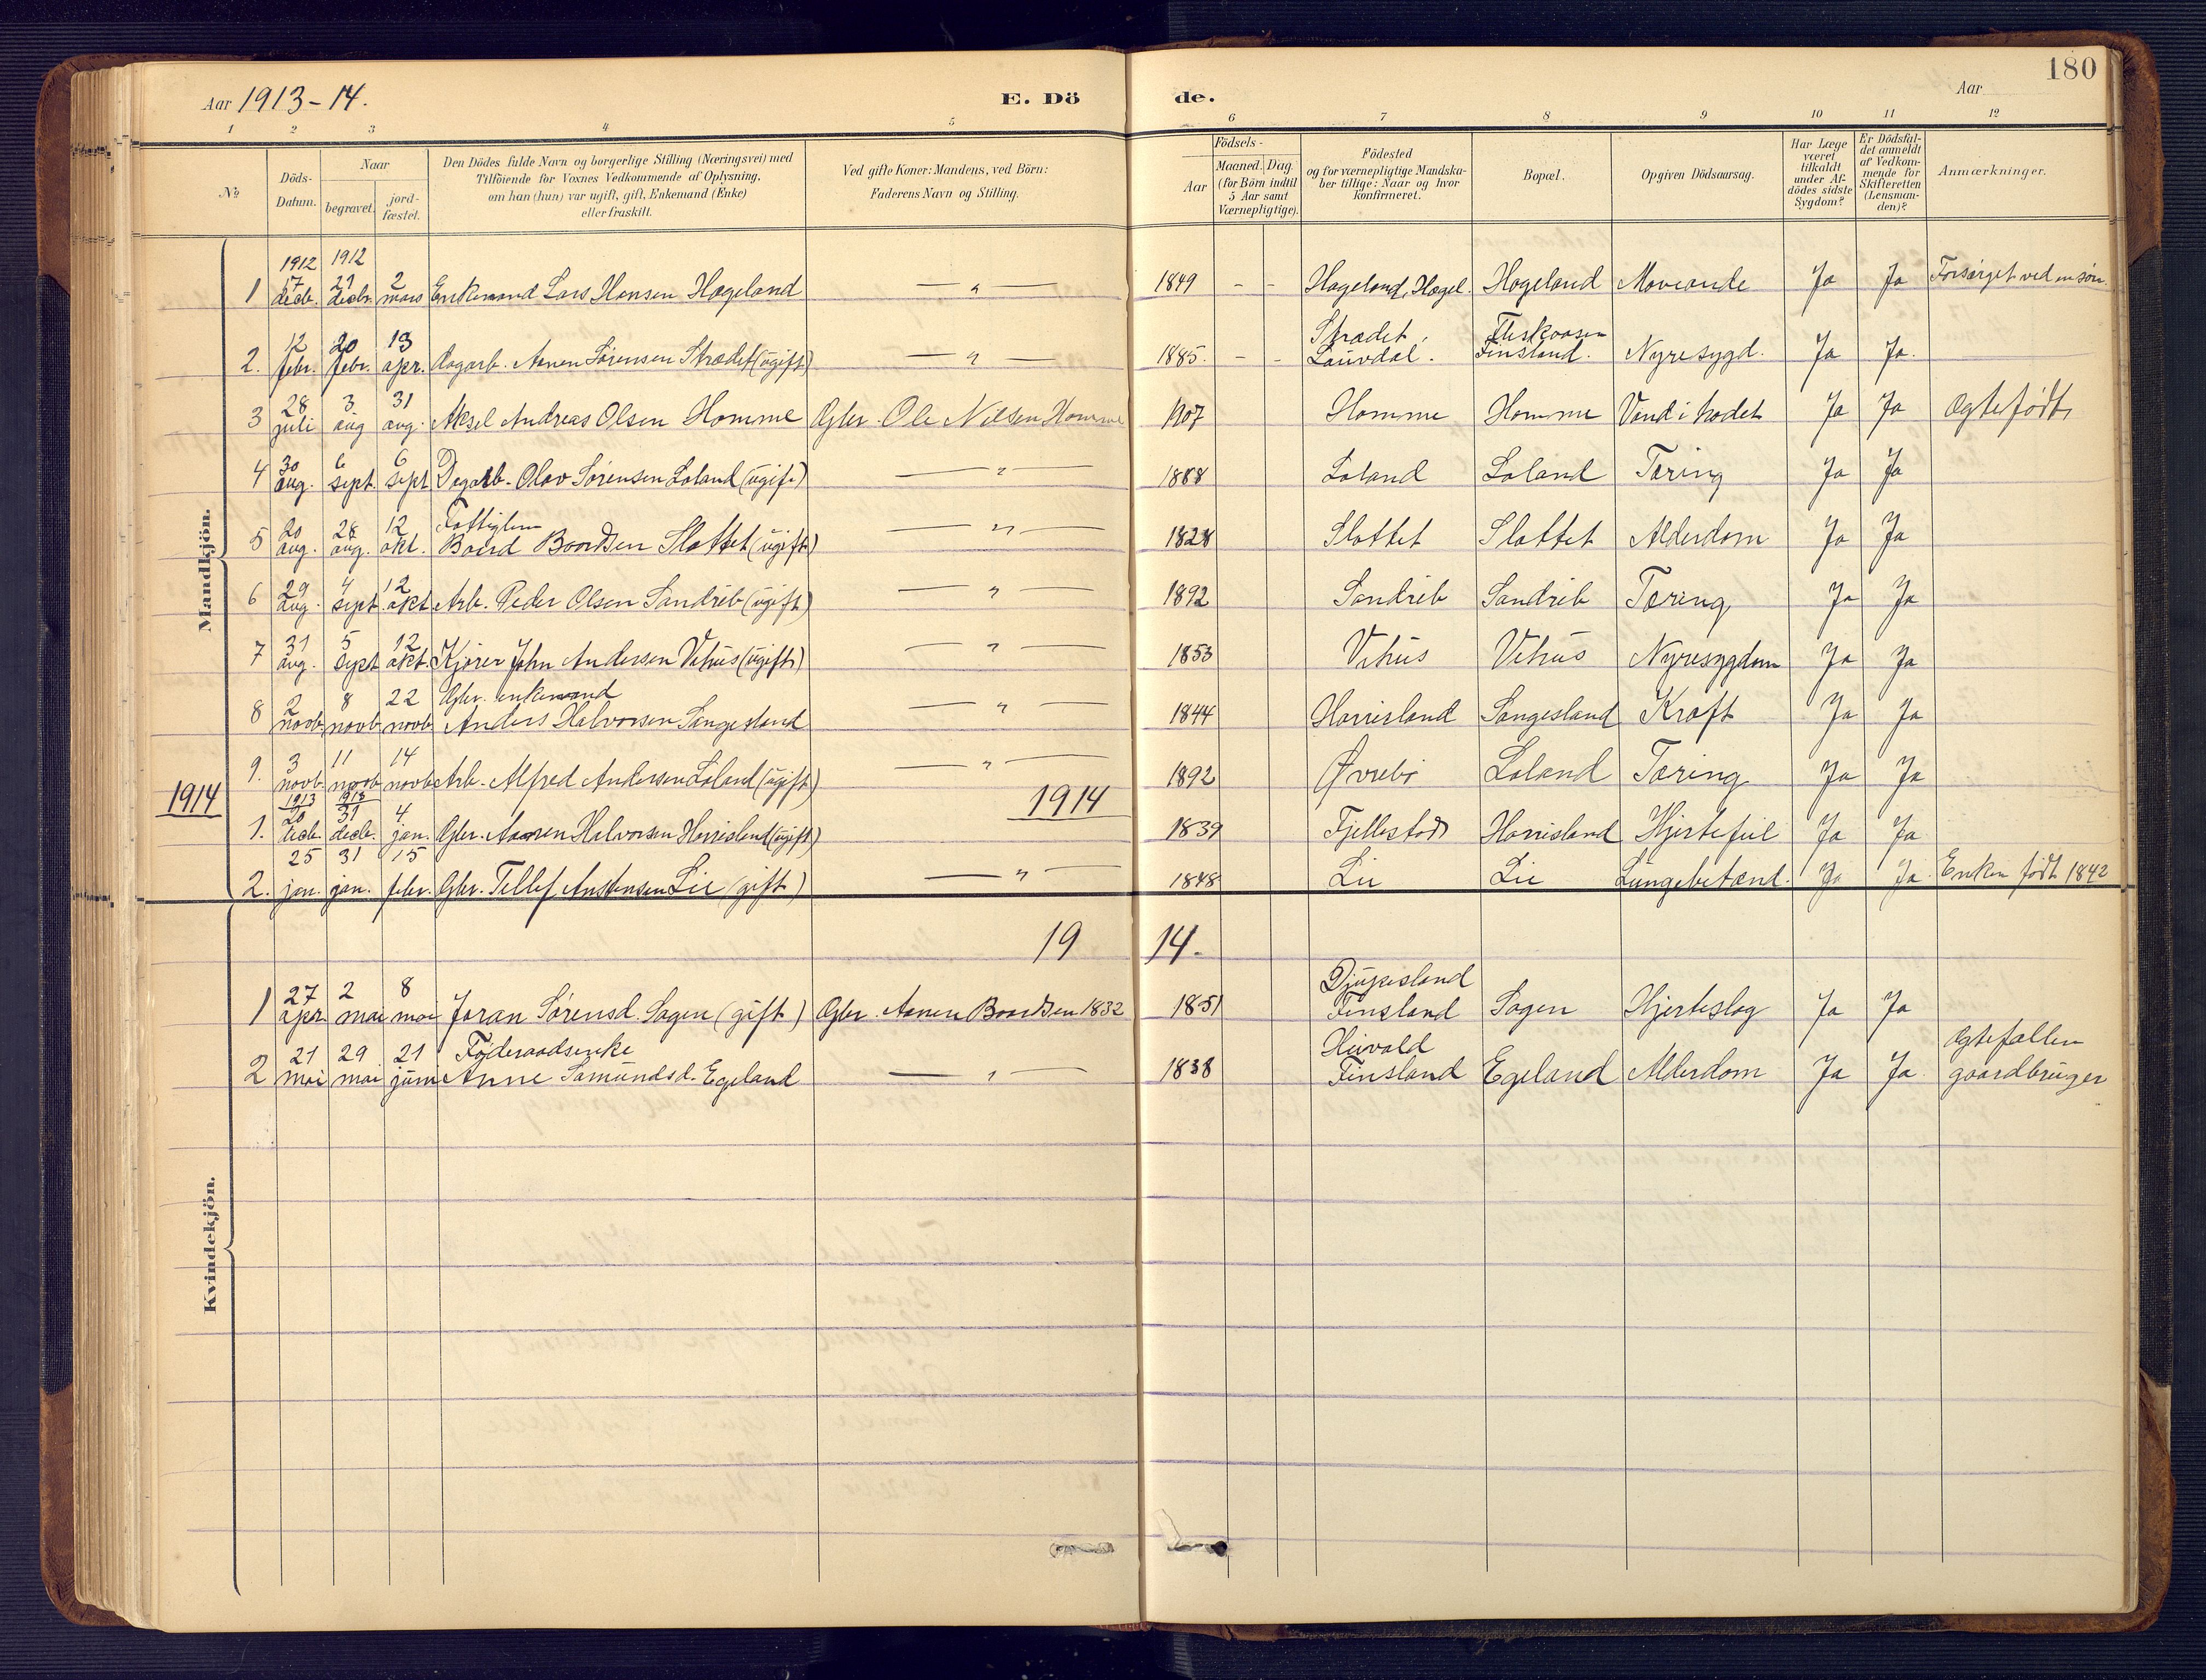 Aar 1913-14.
E. Dö
de.
Aar
180
1 2 3 4 5 6 7 8 9 10 11 12
No
Döds-Datum.
Naar
begravet.
jordfæstet.
Den Dödes fulde Navn og borgerlige Stilling (Næringsvei) med
Tilföiende for Voxnes Vedkommende af Oplysning,
om han (hun) var ugift, gift, Enkemand (Enke)
eller fraskilt.
Ved gifte Koner: Mandens, ved Börn:
Faderens Navn og Stilling.
Födsels-
Aar
Maaned. Dag.
(for Börn indtil
5 Aar samt
Værnepligtige).
Födested
og for værnepligtige Mandska-
ber tillige: Naar og hvor
konfirmeret.
Bopæl.
Opgiven Dödsaarsag.
Har Læge
været
tilkaldt
under Af-
dödes sidste
Sygdom?
Er Dödsfal-
det anmeldt
af Vedkom-
mende for
Skifteretten
(Lensman-
den)?
Anmærkninger.
Mandkjön.
1912 1912
1 17 decb. 29 decbr. 2 mars Enkemand Lars Hansen Hægeland — " — 1849 - - Hageland, Hægel. Hageland Marande Ja Ja Forsørget ved en søn.
2. 12 febr. 20 febr. 13 apr. Dagarb. Aanen Sørensen Strædet (ugift) — " — 1885. - - Strædet, Lauvdal. Fleskaasen Finsland. Nyresygd. Ja Ja.
3 28 juli 3 aug 31 aug. Aksel Andreas Olsen Homme Gbr. Ole Nilsen Homme 1907 Homme Homme Vand i hodet Ja Ja Ægtefødt
4 30 aug. 6 sept. 6 sept Dagarb. Olav Sørensen Loland (ugift) — " — 1888 Loland Loland Tæring Ja Ja
5 20 aug. 28 aug. 12 okt. Fattiglem Baard Baardsen Slottet (ugift) — " — 1828 Slottet Slottet Alderdom Ja Ja
6 29 aug. 4 sept. 12 okt Arb. Peder Olsen Sandrib (ugift) — " — 1892 Sandrib Sandrib Tæring Ja Ja
7 31 aug. 5 sept 12 okt. Kjører John Andersen Vehus (ugift) — " — 1853 Vehus Vehus Nyresygdom Ja Ja
8 2 novb. 8 novb. 22 novb. Gbr. enkemand Anders Halvorsen Langesland — " — 1844 Harrisland Langesland Kræft Ja Ja
9. 3 novb. 11 novb. 14 novb. Arb. Alfred Andersen Loland (ugift) — " — 1892 Øvrebø Loland Tæring Ja Ja
1914 1913 1913 1914
1. 20 decb. 31 decb. 4 jan. Gbr. Aanen Halvorsen Harrisland (ugift) 1839 Fjellestad Harrisland Hjertefeil Ja Ja
2. 25 jan. 31 jan. 15 febr. Gbr. Tellef Anstensen Lie (gift) — " — 1848 Lie Lie Lungebetænd. Ja Ja Enken født 1842
Kvindekjön.
19 14.
1 27 apr. 2 mai 8 mai Joran Sørensd. Sagen (gift) Gbr. Aanen Baardsen 1832 1851 Djupesland Finsland Sagen Hjerteslag Ja Ja
2 21 mai 29 mai 21 juni Føderaadsenke Anne Samundsd. Egeland — " — 1838 Heivold Finsland Egeland Alderdom Ja Ja Ægtefællen gaardbruger